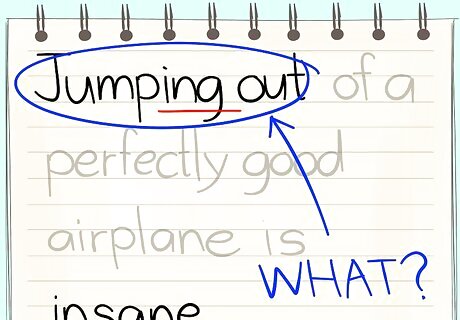 Jumping out of a
perfectly good
airplane is
WHAT?
insane